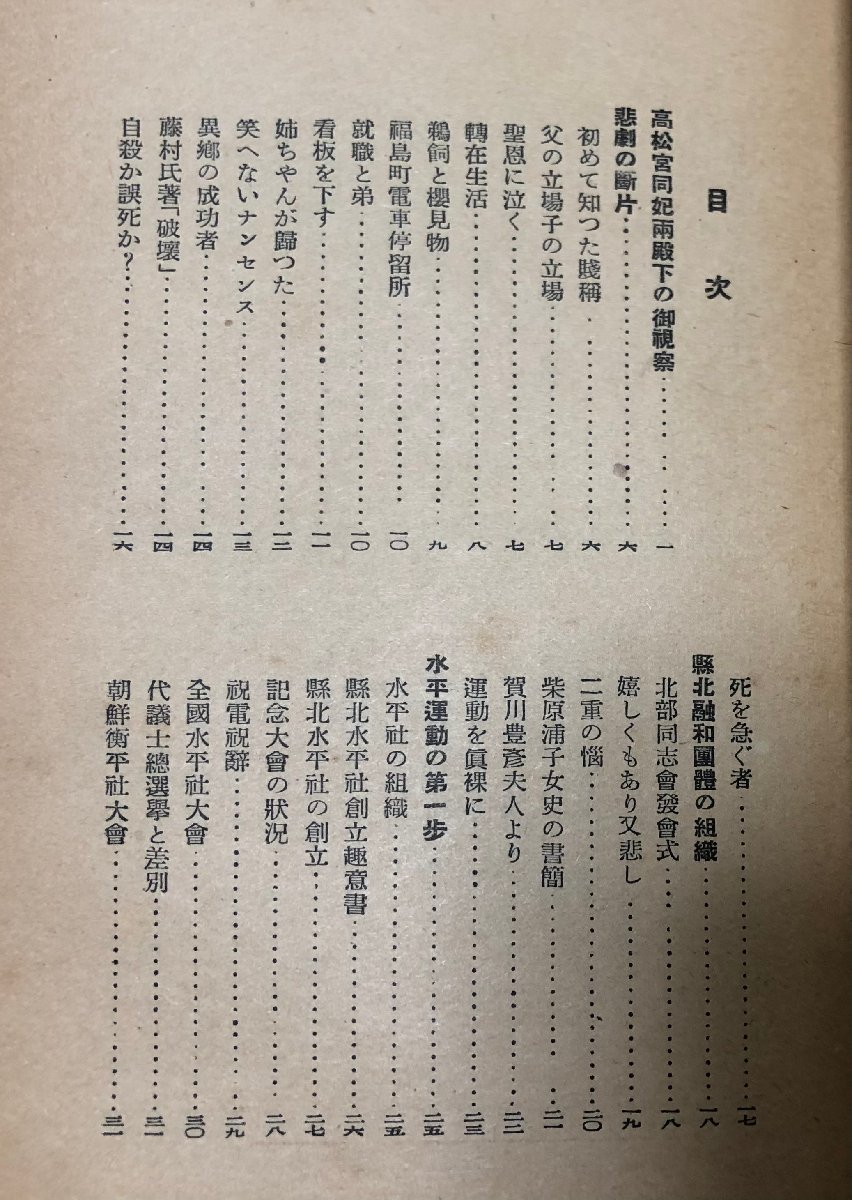 目次
高松宮同妃兩殿下の御視察…………一
悲劇の斷片…………六
初めて知つた賤稱…………六
父の立場子の立場…………七
聖恩に泣く…………七
轉在生活…………八
鵜飼と櫻見物…………九
福島町電車停留所…………一〇
就職と弟…………一〇
看板を下す…………一一
姉ちやんが歸つた…………一二
笑へないナンセンス…………一三
異鄕の成功者…………一四
藤村氏著「破壞」…………一四
自殺か誤死か？…………一六
死を急ぐ者…………一七
縣北融和團體の組織…………一八
北部同志會發會式…………一八
嬉しくもあり又悲し…………一九
二重の惱…………二〇
柴原浦子女史の書簡…………二一
賀川豊彥夫人より…………二二
運動を眞裸に…………二三
水平運動の第一步…………二五
水平社の組織…………二五
縣北水平社創立趣意書…………二六
縣北水平社の創立…………二七
記念大會の狀況…………二八
祝電祝辭…………二九
全國水平社大會…………三〇
代議士總選擧と差別…………三一
朝鮮衡平社大會…………三一